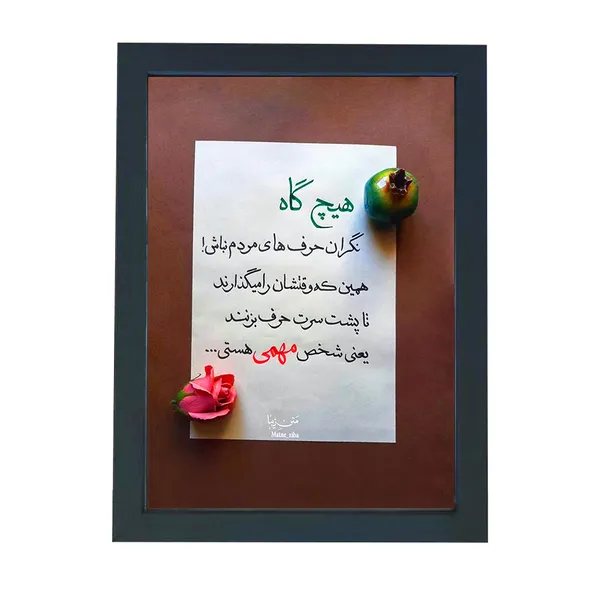 هیچ گاه
نگران حرف های مردم نباش!
همین که وقتشان را میگذارند
تا پشت سرت حرف بزنند
یعنی شخص مهمی هستی...
متن زیبا
Matne_ziba